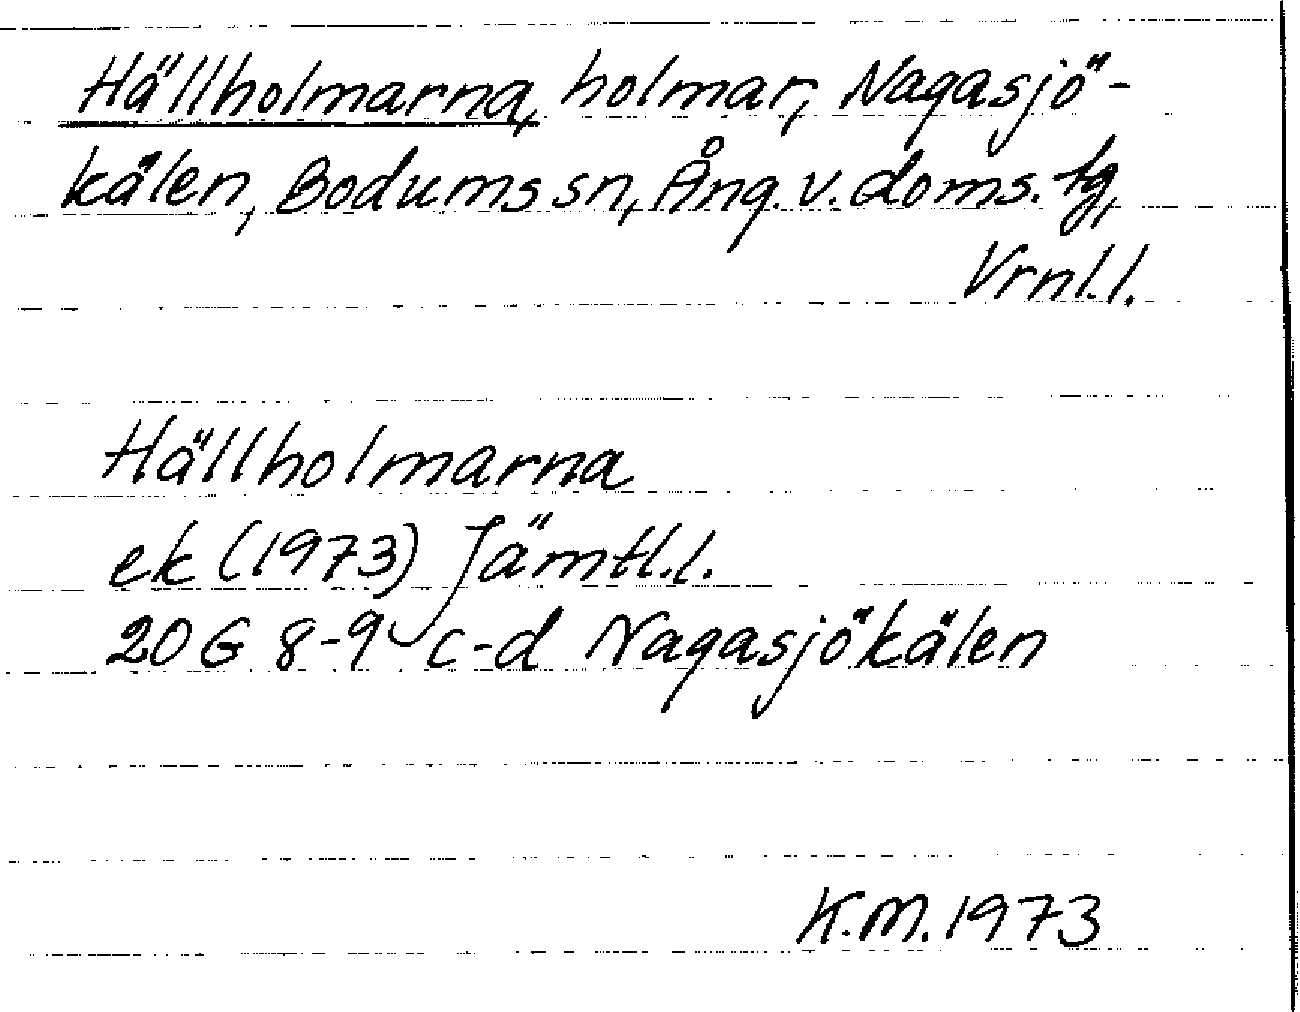 Hällholmarna, holmar, Nagasjö-
kälen, Bodums sn, Ång. v. doms. tg,
Vrnl.l.
Hällholmarna
ek (1973) Jämtl.l.
20 G 8-9 c-d Nagasjökälen
K.M. 1973